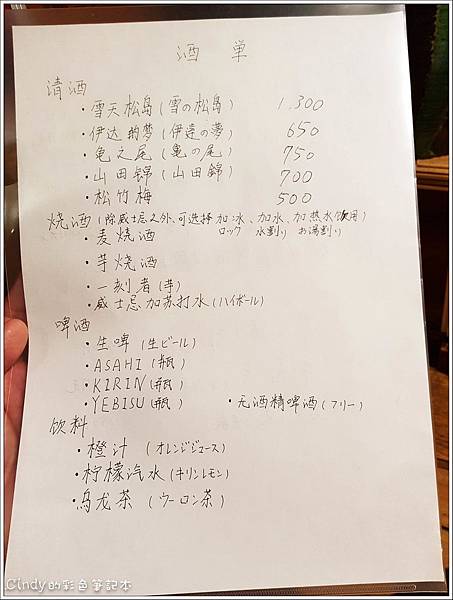 酒 単
清酒
・雪天松島(雪の松島) 1.300
・伊达的梦(伊達の夢) 650
・亀之尾(亀の尾) 750
・山田錦(山田錦) 700
・松竹梅 500
烧酒(除威士忌之外、可选择 加冰、加水、加热水饮用)
ロック 水割り お湯割り
・麦烧酒
・芋烧酒
・一刻者(芋)
・威士忌加苏打水(ハイボール)
啤酒
・生啤(生ビール)
・ASAHI(瓶)
・KIRIN(瓶)
・YEBISU(瓶) ・无酒精啤酒(フリー)
饮料
・橙汁 (オレンジジュース)
・柠檬汽水(キリンレモン)
・乌龙茶(ウーロン茶)
Cindy的彩色筆記本